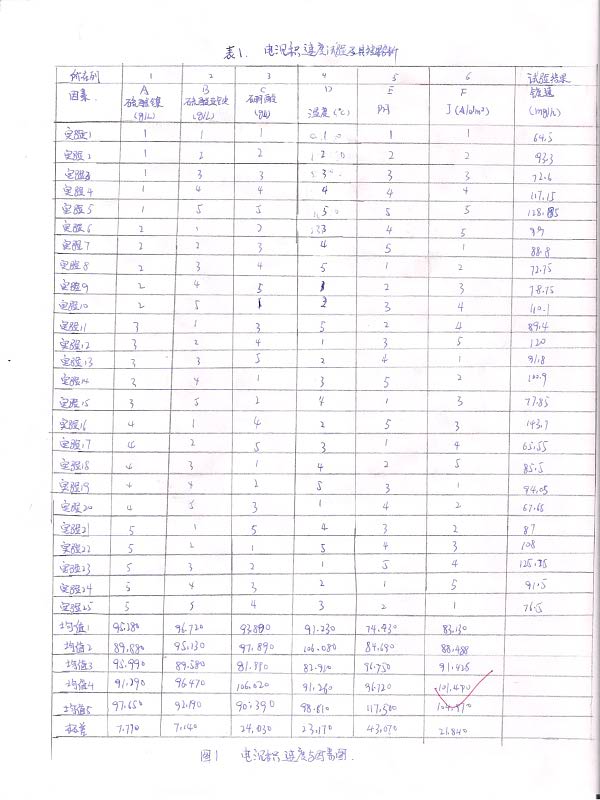 表1. 电沉积速度试验及其结果分析
所在列 1 2 3 4 5 6 试验结果
因素 A 硫酸镍 (g/L) B 硫酸亚铁 (g/L) C 硼酸 (g/L) D 温度(℃) E PH F J(A/dm²) 镀速 (mg/h)
实验1 1 1 1 1 1 1 64.5
实验2 1 2 2 2 2 2 93.3
实验3 1 3 3 3 3 3 72.6
实验4 1 4 4 4 4 4 117.15
实验5 1 5 5 5 5 5 128.85
实验6 2 1 2 3 4 5
实验7 2 2 3 4 5 1 88.8
实验8 2 3 4 5 1 2 72.75
实验9 2 4 5 1 2 3 78.75
实验10 2 5 1 2 3 4 110.1
实验11 3 1 3 5 2 4 89.4
实验12 3 2 4 1 3 5 120
实验13 3 3 5 2 4 1 91.8
实验14 3 4 1 3 5 2
实验15 3 5 2 4 1 3 77.85
实验16 4 1 4 2 5 3 143.7
实验17 4 2 5 3 1 4 65.55
实验18 4 3 1 4 2 5 85.5
实验19 4 4 2 5 3 1 94.05
实验20 4 5 3 1 4 2 67.65
实验21 5 1 5 4 3 2 87
实验22 5 2 1 5 4 3 108
实验23 5 3 2 1 5 4
实验24 5 4 3 2 1 5 91.5
实验25 5 5 4 3 2 1 76.5
均值1 95.280 96.720 93.890 91.230 74.430 83.130
均值2 89.880 95.130 97.890 106.080 84.690 88.488
均值3 95.990 89.580 82.950 96.750
均值4 91.290 96.470 106.020 91.260 96.720 101.490
均值5 97.650 92.190 90.390 98.610 117.500
极差 7.770 7.140 24.030 23.170 43.070 21.840
图1 电沉积速度与因素图.